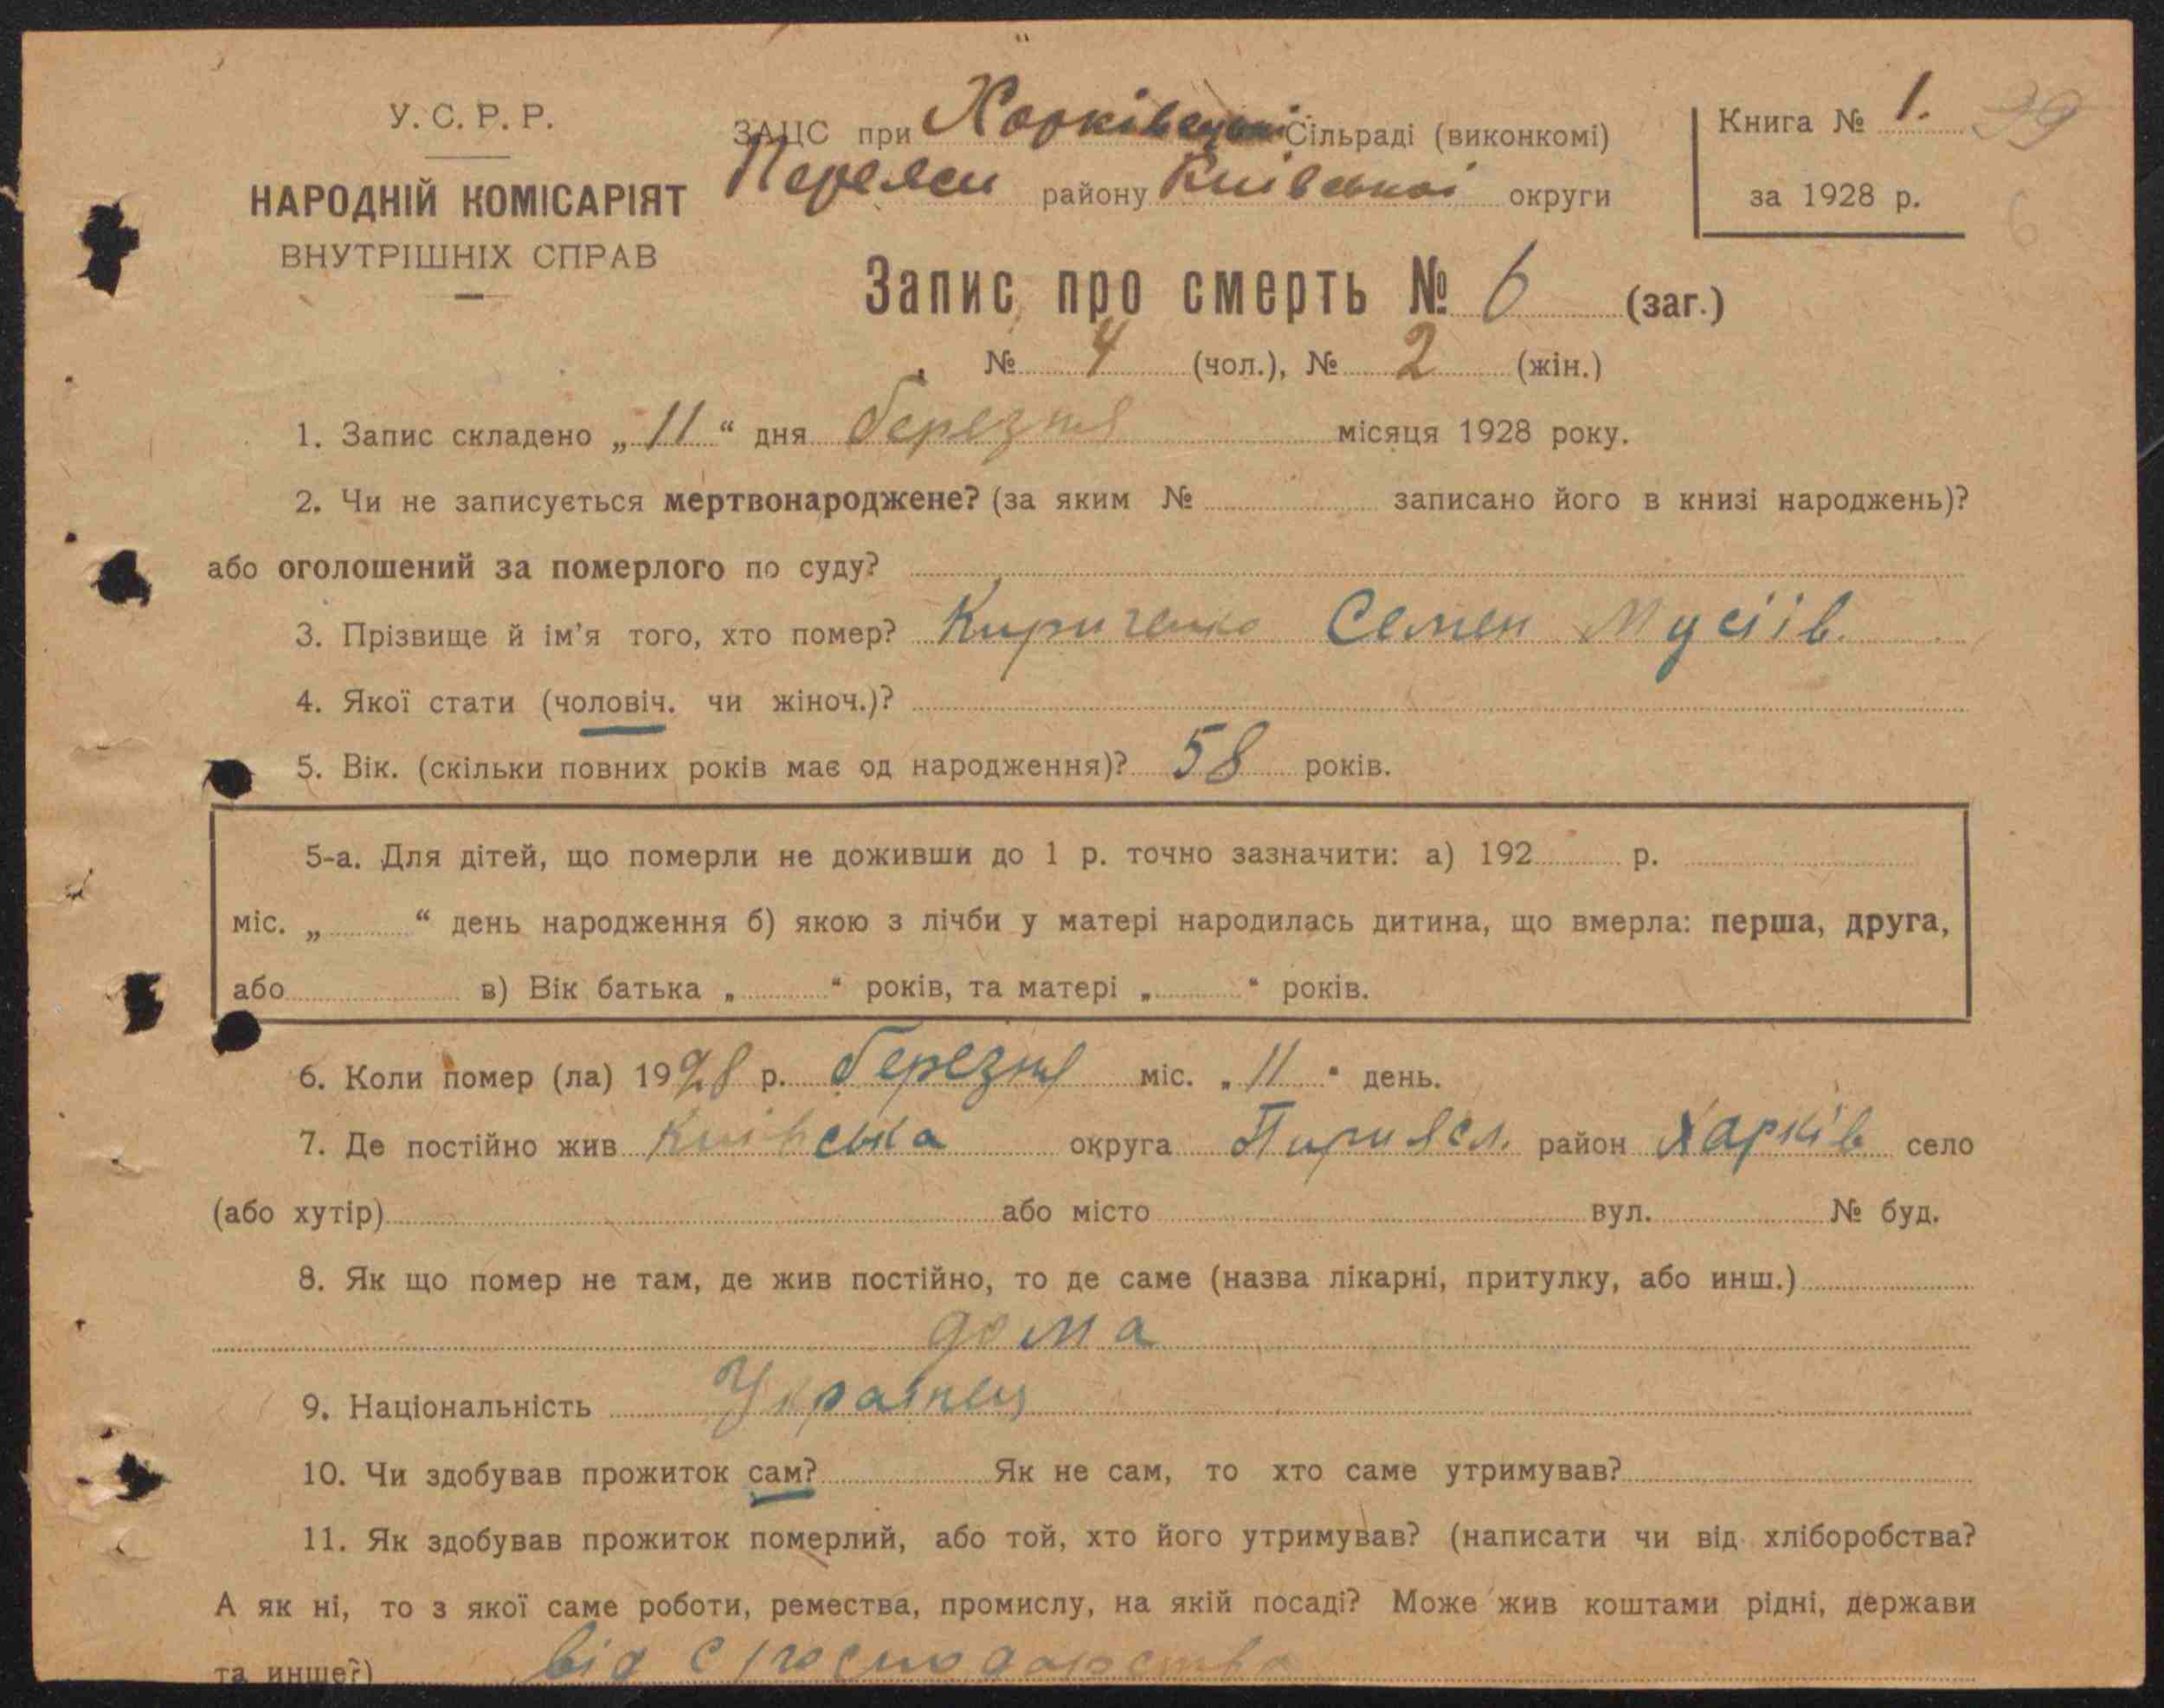 У. С. Р. Р.
НАРОДНІЙ КОМІСАРІЯТ
ВНУТРІШНІХ СПРАВ
ЗАЦС при Харківецькі Сільраді (виконкомі)
Переясл району Київської округи
Книга № 1. 39
за 1928 р. 6
Запис про смерть № 6 (заг.)
№ 4 (чол.), № 2 (жін.)
1. Запис складено „11“ дня березня місяця 1928 року.
2. Чи не записується мертвонароджене? (за яким № записано його в книзі народжень)?
або оголошений за померлого по суду?
3. Прізвище й ім’я того, хто помер? Кириченко Семен Мусіів.
4. Якої стати (чоловіч. чи жіноч.)?
5. Вік. (скільки повних років має од народження)? 58 років.
5-а. Для дітей, що померли не доживши до 1 р. точно зазначити: а) 192 р.
міс. „ “ день народження б) якою з лічби у матері народилась дитина, що вмерла: перша, друга,
або в) Вік батька „ “ років, та матері „ “ років.
6. Коли помер (ла) 1928 р. березня міс. „11“ день.
7. Де постійно жив Київська округа Пириясл. район Харків село
(або хутір) або місто вул. № буд.
8. Як що помер не там, де жив постійно, то де саме (назва лікарні, притулку, або инш.)
дома
9. Національність Українец
10. Чи здобував прожиток сам? Як не сам, то хто саме утримував?
11. Як здобував прожиток померлий, або той, хто його утримував? (написати чи від хліборобства?
А як ні, то з якої саме роботи, ремества, промислу, на якій посаді? Може жив коштами рідні, держави
та инше?) від с/господарства